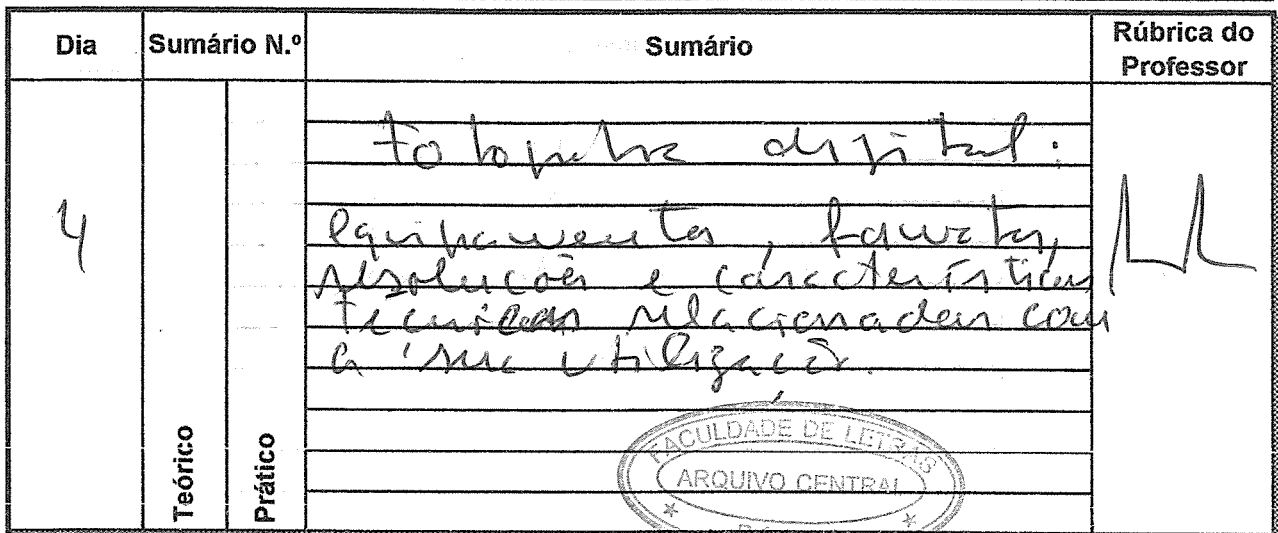 Dia Sumário N.º Sumário Rúbrica do Professor
4
Fotografia digital:
equipamentos, formatos,
resoluções e características
técnicas relacionadas com
a sua utilização.
Teórico
Prático
FACULDADE DE LETRAS
ARQUIVO CENTRAL